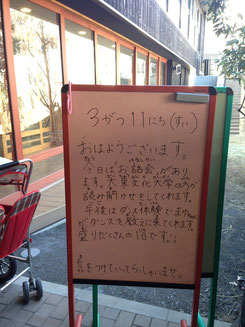 3がつ11にち(すい)
おはようございます。
今日は「お話会」があり
ます。大東文化大学の方が
読み聞かせをしてくれます。
午後はダンス体験です。
がダンスを教えに来てくれます。
盛りだくさんの1日です!!
気をつけていってらっしゃいませ。